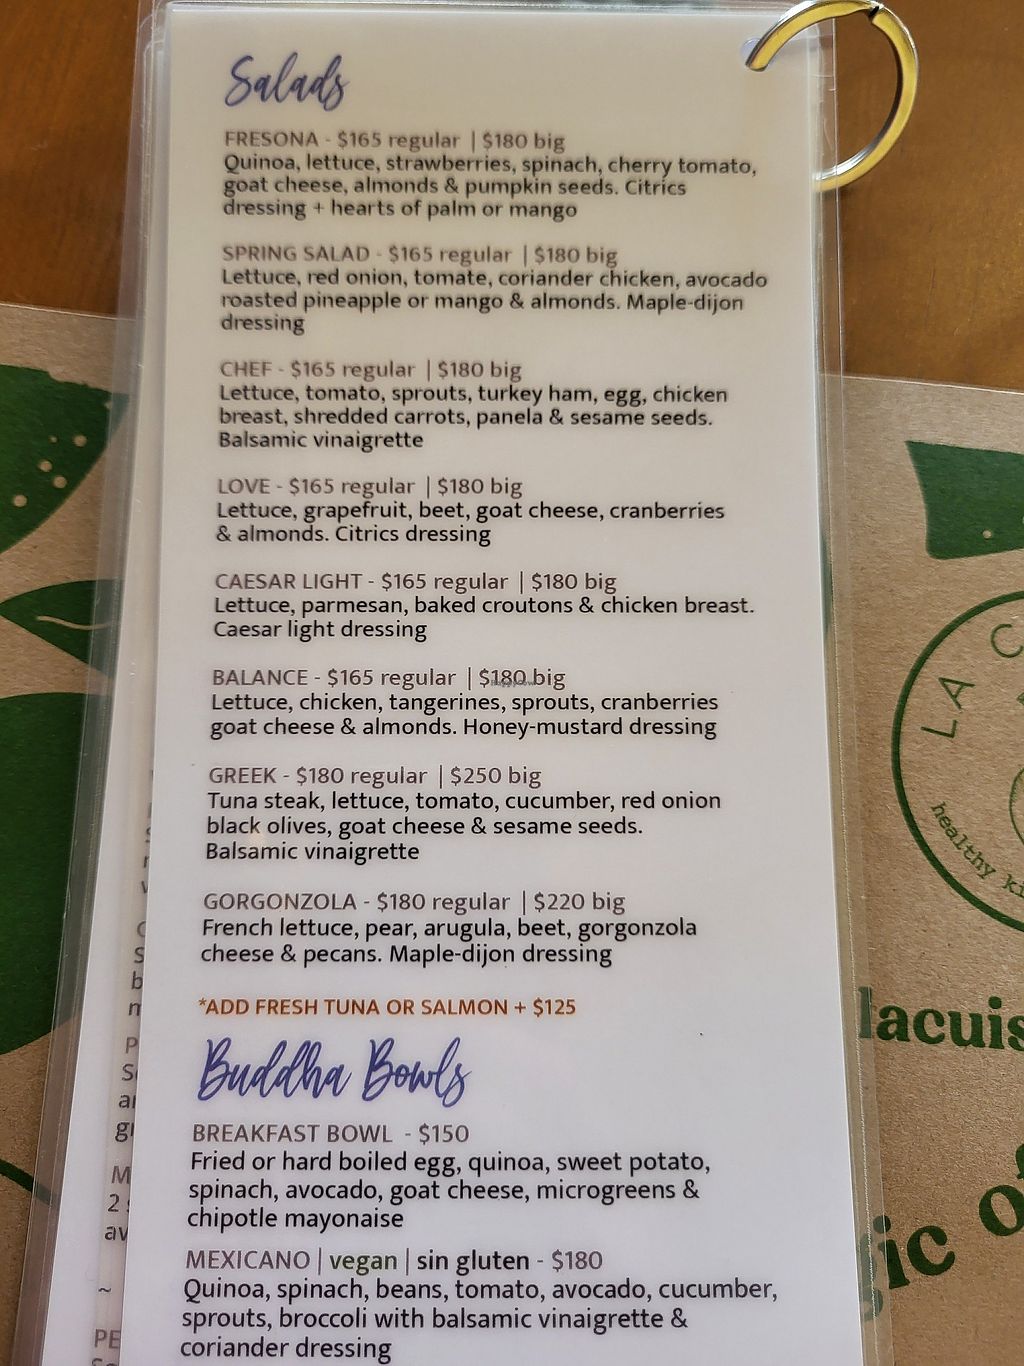 Salads
FRESONA - $165 regular | $180 big
Quinoa, lettuce, strawberries, spinach, cherry tomato,
goat cheese, almonds & pumpkin seeds. Citrics
dressing + hearts of palm or mango
SPRING SALAD - $165 regular | $180 big
Lettuce, red onion, tomate, coriander chicken, avocado
roasted pineapple or mango & almonds. Maple-dijon
dressing
CHEF - $165 regular | $180 big
Lettuce, tomato, sprouts, turkey ham, egg, chicken
breast, shredded carrots, panela & sesame seeds.
Balsamic vinaigrette
LOVE - $165 regular | $180 big
Lettuce, grapefruit, beet, goat cheese, cranberries
& almonds. Citrics dressing
CAESAR LIGHT - $165 regular | $180 big
Lettuce, parmesan, baked croutons & chicken breast.
Caesar light dressing
BALANCE - $165 regular | $180 big
Lettuce, chicken, tangerines, sprouts, cranberries
goat cheese & almonds. Honey-mustard dressing
GREEK - $180 regular | $250 big
Tuna steak, lettuce, tomato, cucumber, red onion
black olives, goat cheese & sesame seeds.
Balsamic vinaigrette
GORGONZOLA - $180 regular | $220 big
French lettuce, pear, arugula, beet, gorgonzola
cheese & pecans. Maple-dijon dressing
*ADD FRESH TUNA OR SALMON + $125
Buddha Bowls
BREAKFAST BOWL - $150
Fried or hard boiled egg, quinoa, sweet potato,
spinach, avocado, goat cheese, microgreens &
chipotle mayonaise
MEXICANO | vegan | sin gluten - $180
Quinoa, spinach, beans, tomato, avocado, cucumber,
sprouts, broccoli with balsamic vinaigrette &
coriander dressing
LA C
healthy ki
lacuis
gic of